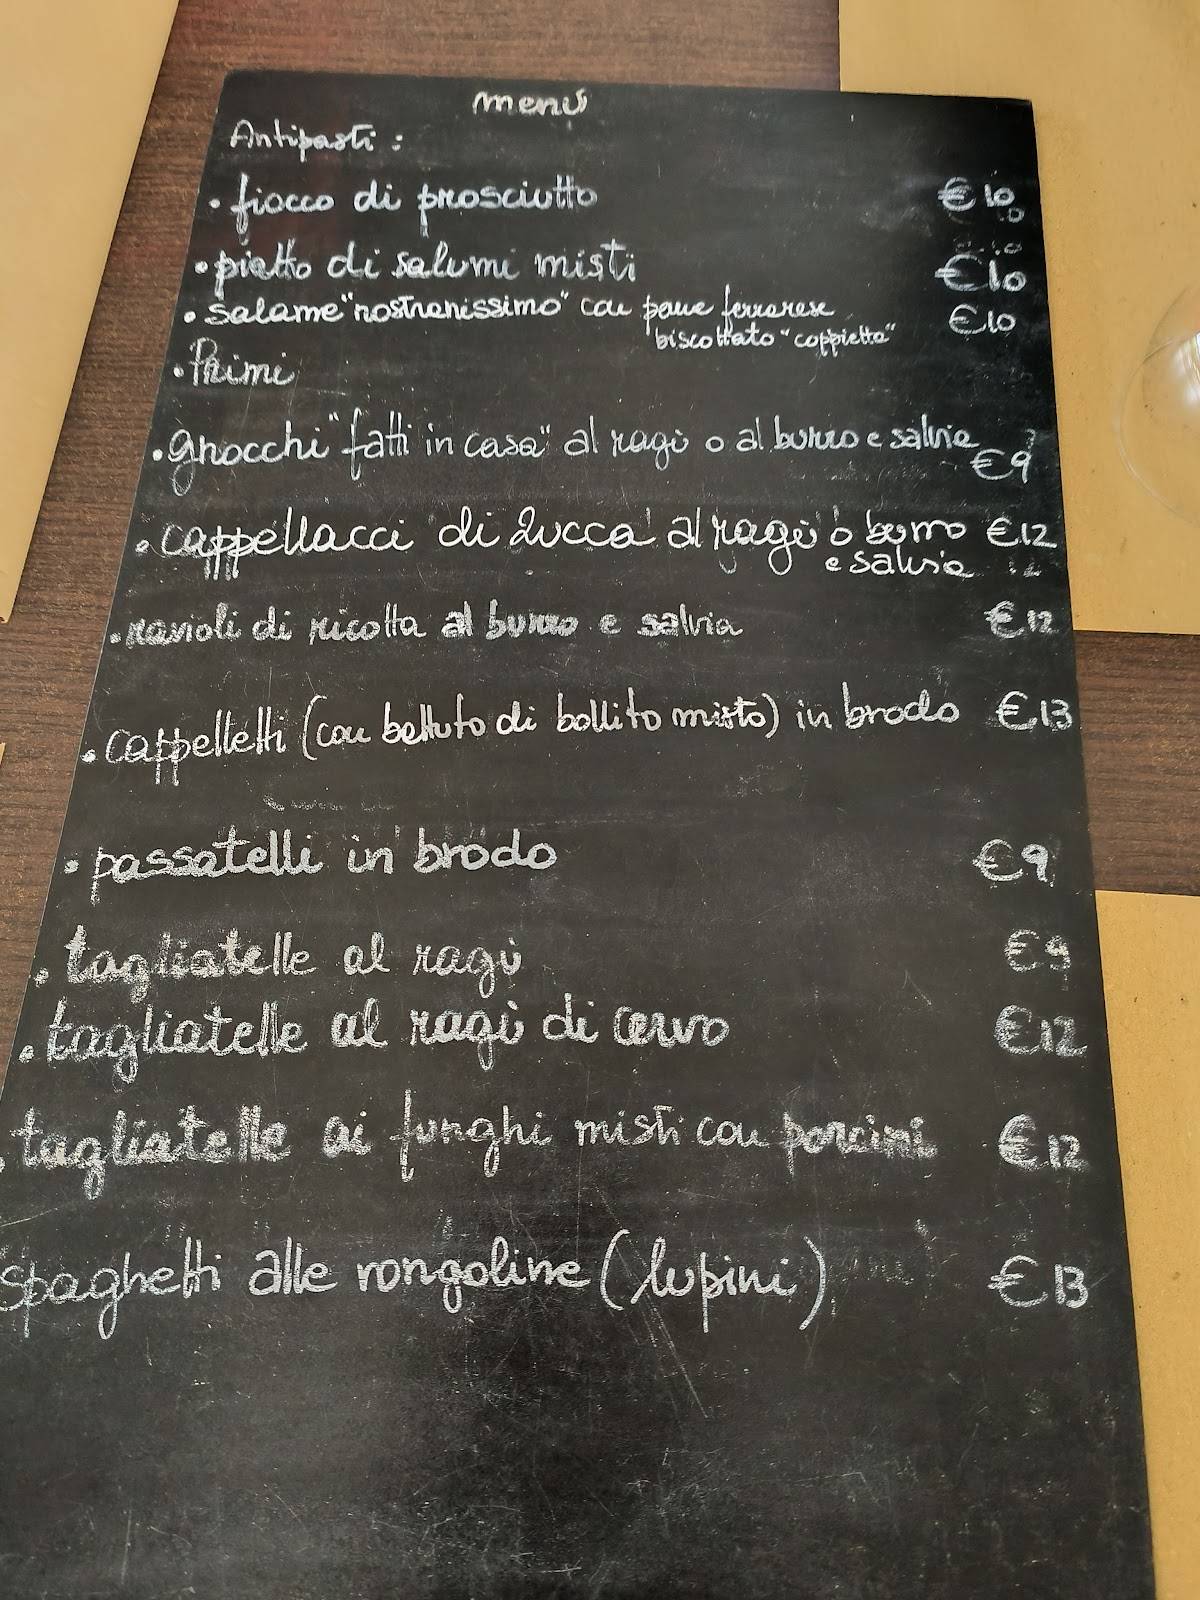 menù
Antipasti:
• fiocco di prosciutto €10
• piatto di salumi misti €10
• salame "nostranissimo" con pane ferrarese
biscottato "coppietta" €10
• Primi
• gnocchi "fatti in casa" al ragù o al burro e salvia
€9
• cappellacci di zucca al ragù o burro €12
e salvia
• ravioli di ricotta al burro e salvia €12
• cappelletti (con battuto di bollito misto) in brodo €13
• passatelli in brodo €9
• tagliatelle al ragù €9
• tagliatelle al ragù di cervo €12
• tagliatelle ai funghi misti con porcini €12
spaghetti alle vongoline (lupini) €13